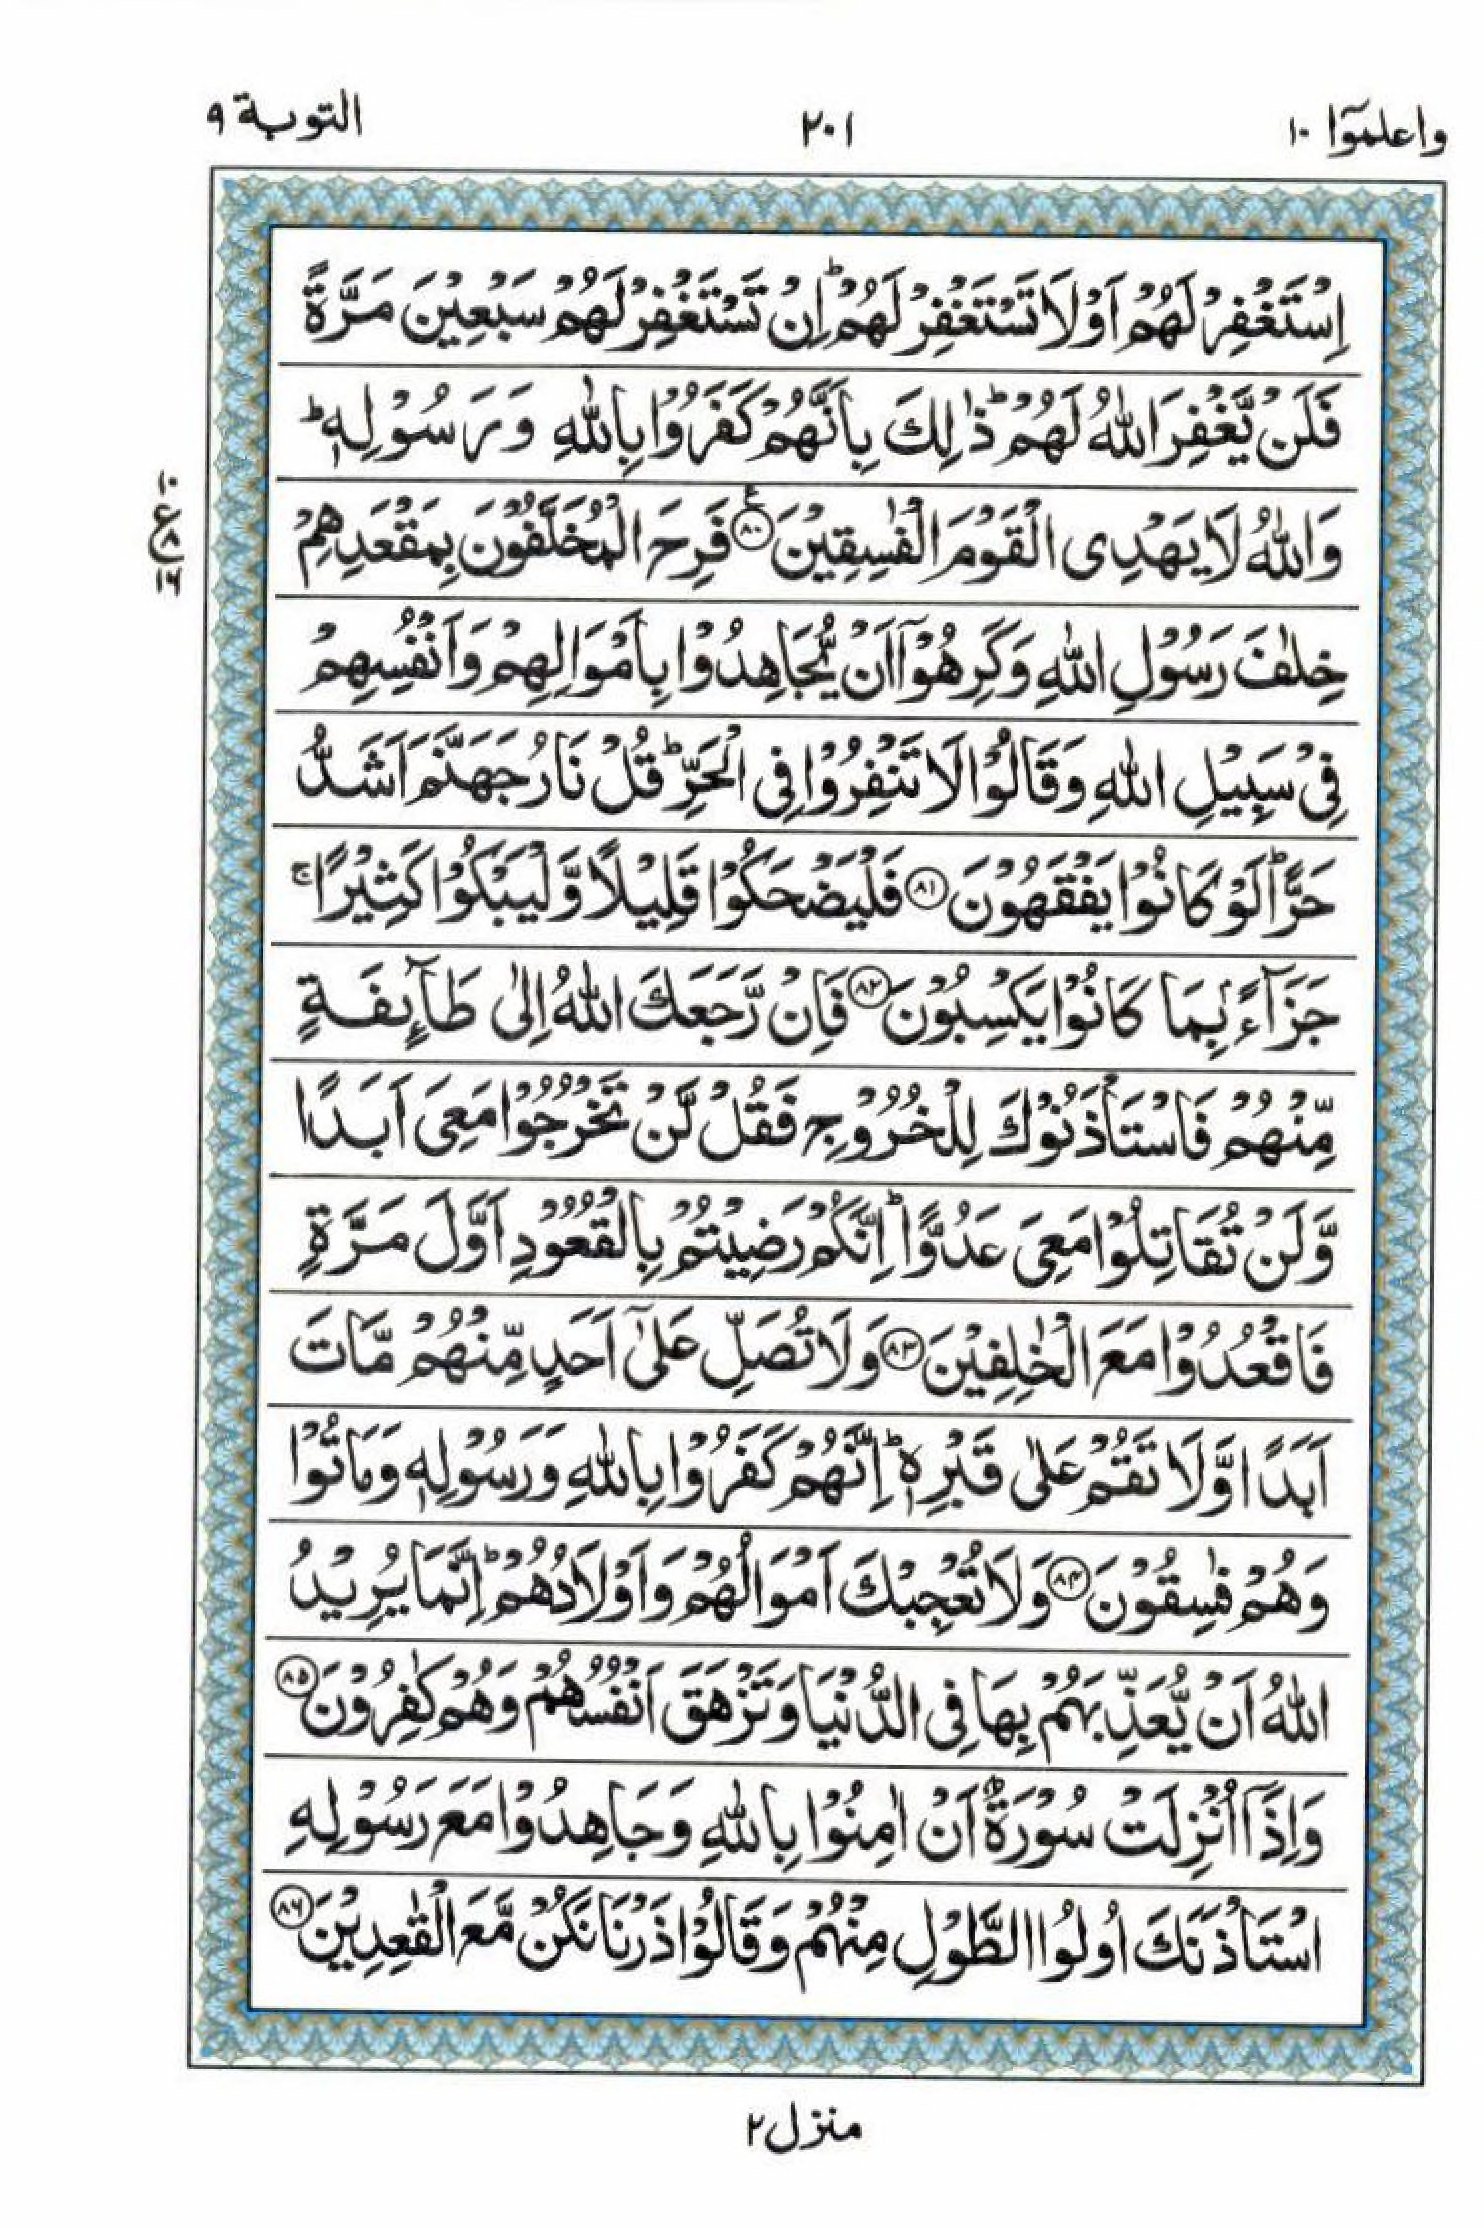 واعلموٓا ١٠
٢٠١
التوبة ٩
اِسْتَغْفِرْ لَهُمْ اَوْ لَا تَسْتَغْفِرْ لَهُمْ ؕ اِنْ تَسْتَغْفِرْ لَهُمْ سَبْعِيْنَ مَرَّةً
فَلَنْ يَّغْفِرَ اللّٰهُ لَهُمْ ؕ ذٰلِكَ بِاَنَّهُمْ كَفَرُوْا بِاللّٰهِ وَ رَسُوْلِهٖ ؕ
وَاللّٰهُ لَا يَهْدِى الْقَوْمَ الْفٰسِقِيْنَ ﴿٨٠﴾ ع فَرِحَ الْمُخَلَّفُوْنَ بِمَقْعَدِهِمْ
١٠
ع
٨
١٦
خِلٰفَ رَسُوْلِ اللّٰهِ وَكَرِهُوْۤا اَنْ يُّجَاهِدُوْا بِاَمْوَالِهِمْ وَاَنْفُسِهِمْ
فِىْ سَبِيْلِ اللّٰهِ وَقَالُوْا لَا تَنْفِرُوْا فِى الْحَرِّ ؕ قُلْ نَارُ جَهَنَّمَ اَشَدُّ
حَرًّا ؕ لَوْ كَانُوْا يَفْقَهُوْنَ ﴿٨١﴾ فَلْيَضْحَكُوْا قَلِيْلًا وَّلْيَبْكُوْا كَثِيْرًا ۚ
جَزَآءًۢ بِمَا كَانُوْا يَكْسِبُوْنَ ﴿٨٢﴾ فَاِنْ رَّجَعَكَ اللّٰهُ اِلٰى طَآئِفَةٍ
مِّنْهُمْ فَاسْتَاْذَنُوْكَ لِلْخُرُوْجِ فَقُلْ لَّنْ تَخْرُجُوْا مَعِىَ اَبَدًا
وَّلَنْ تُقَاتِلُوْا مَعِىَ عَدُوًّا ؕ اِنَّكُمْ رَضِيْتُمْ بِالْقُعُوْدِ اَوَّلَ مَرَّةٍ
فَاقْعُدُوْا مَعَ الْخٰلِفِيْنَ ﴿٨٣﴾ وَلَا تُصَلِّ عَلٰٓى اَحَدٍ مِّنْهُمْ مَّاتَ
اَبَدًا وَّلَا تَقُمْ عَلٰى قَبْرِهٖ ؕ اِنَّهُمْ كَفَرُوْا بِاللّٰهِ وَرَسُوْلِهٖ وَمَاتُوْا
وَهُمْ فٰسِقُوْنَ ﴿٨٤﴾ وَلَا تُعْجِبْكَ اَمْوَالُهُمْ وَاَوْلَادُهُمْ ؕ اِنَّمَا يُرِيْدُ
اللّٰهُ اَنْ يُّعَذِّبَهُمْ بِهَا فِى الدُّنْيَا وَتَزْهَقَ اَنْفُسُهُمْ وَهُمْ كٰفِرُوْنَ ﴿٨٥﴾
وَاِذَاۤ اُنْزِلَتْ سُوْرَةٌ اَنْ اٰمِنُوْا بِاللّٰهِ وَجَاهِدُوْا مَعَ رَسُوْلِهِ
اسْتَاْذَنَكَ اُولُوا الطَّوْلِ مِنْهُمْ وَقَالُوْا ذَرْنَا نَكُنْ مَّعَ الْقٰعِدِيْنَ ﴿٨٦﴾
منزل ٢